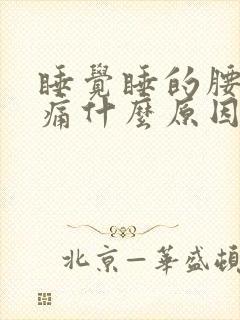 睡覺睡的腰
痛什麼原因
北京—華盛頓